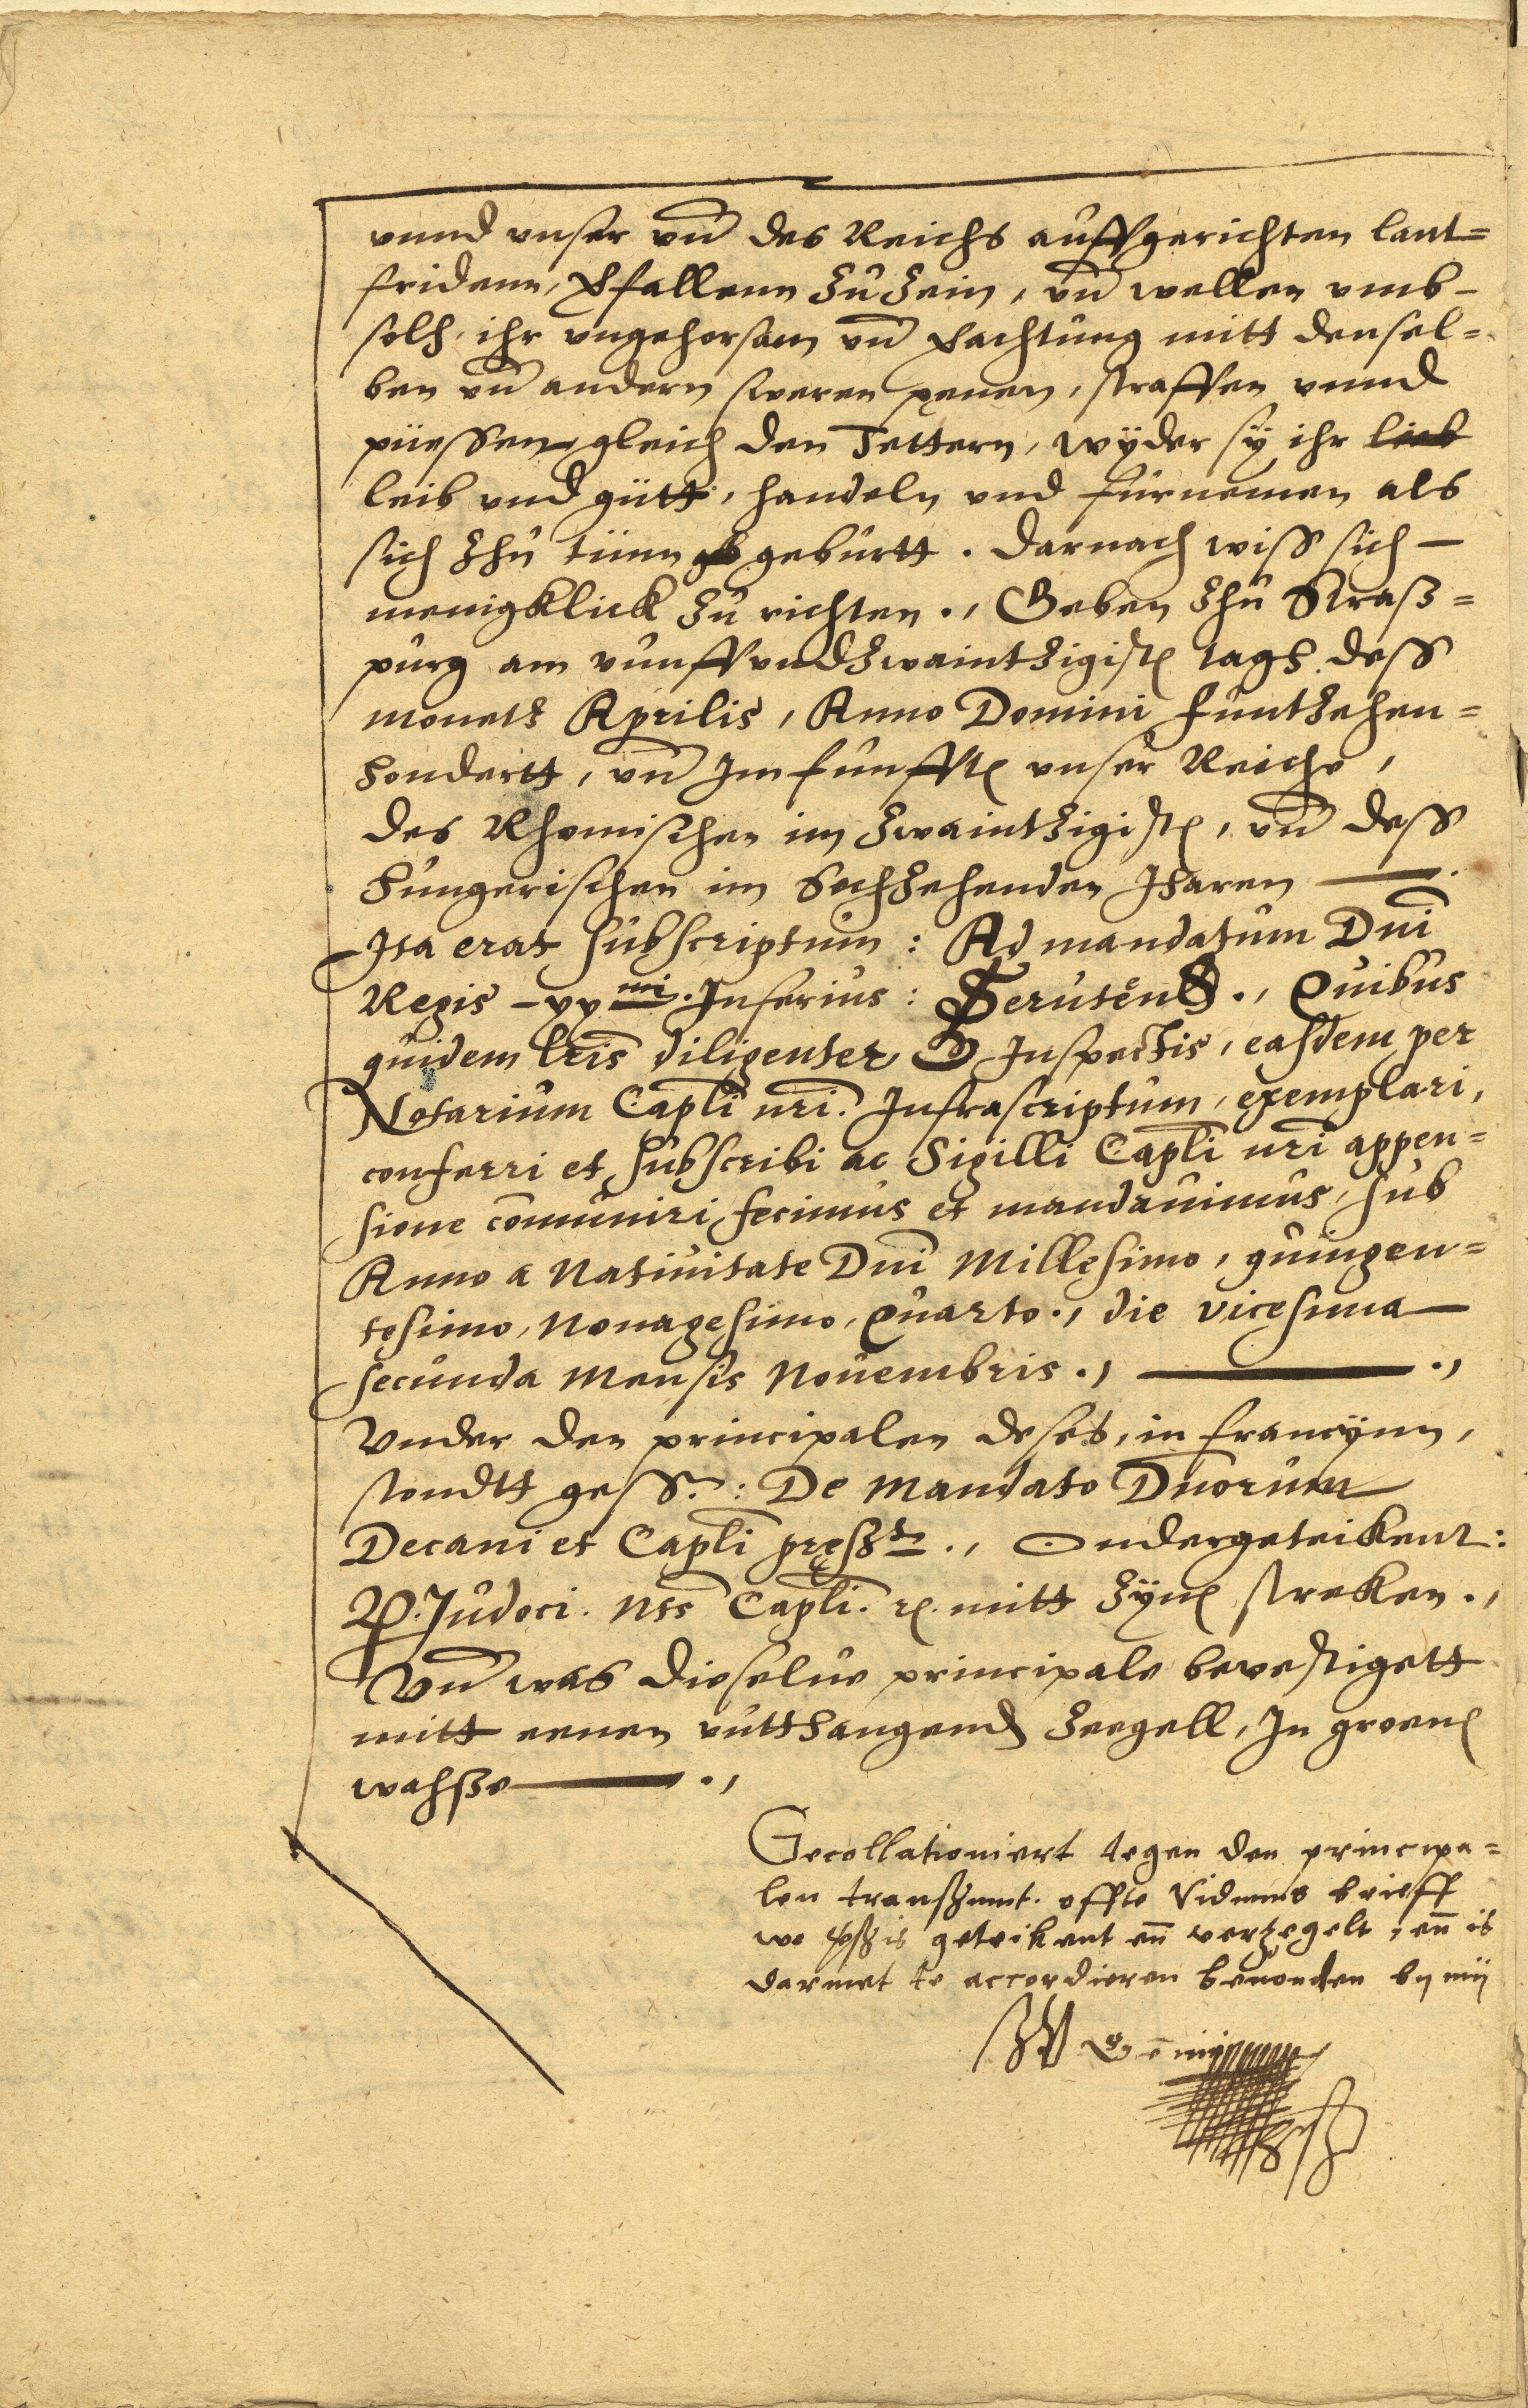 vnnd vnser vn̄ des Reichs auffgerichten lant=
fridenn, Vfallenn zu zein, vn̄ wellen vmb-
solh, ihr vngehorsam vn̄ Vachtung mitt densel=
ben vn̄ andern sweren penen, straffen vnnd
püessen, gleich den Tettern, wÿder sÿ ihr lieb
leib vnd gütt, handeln vnd fürnemen als
sich zhu tünn geburtt. Darnach wiss sich -
menigklick zu richten., Geben zhu Straß=
purg am vunffvndzwaintzigist tagh dess
monetz Aprilis, Anno Domini funtzehen=
hondertt, vn̄ Im funfften vnser Reiche,
des Rhomischen im zwaintzigisten, vn̄ dess
hungerischen im Sechzehenden Iharen —.
Ita erat subscriptum: Ad mandatum Dn̄i
Regis - Inferius: Serutein., Quibus
quidem lr̄is diligenter Inspectis, easdem per
Notarium Capl̄i nr̄i. Infrascriptum, exemplari,
conferri et subscribi ac Sigilli Capl̄i nr̄i appen=
sione com̄uniri fecimus et mandauimus, sub
Anno a Natiuitate Dn̄i Millesimo, quingen=
tesimo, Nonagesimo, Quarto., die vicesima —
secunda Mensis Nouembris., — .,
Vnder den principalen deses, in francÿnn,
stondtt gess.: De Mandato Dn̄orum
Decani et Capl̄i .., Ondergeteikent:
P. Judoci. Nts̄ Capl̄i. mitt zÿnen streken.,
Vn̄ was dieselue principale bevestigett
mitt eenen vutthangend zeegell, In groenen
wahsse — .,
Gecollationiert tegen den principa=
len transsumt. offte Vidimus brieff
we is geteikent en̄ verzegelt, en̄ is
darmet te accordieren beuonden by mij